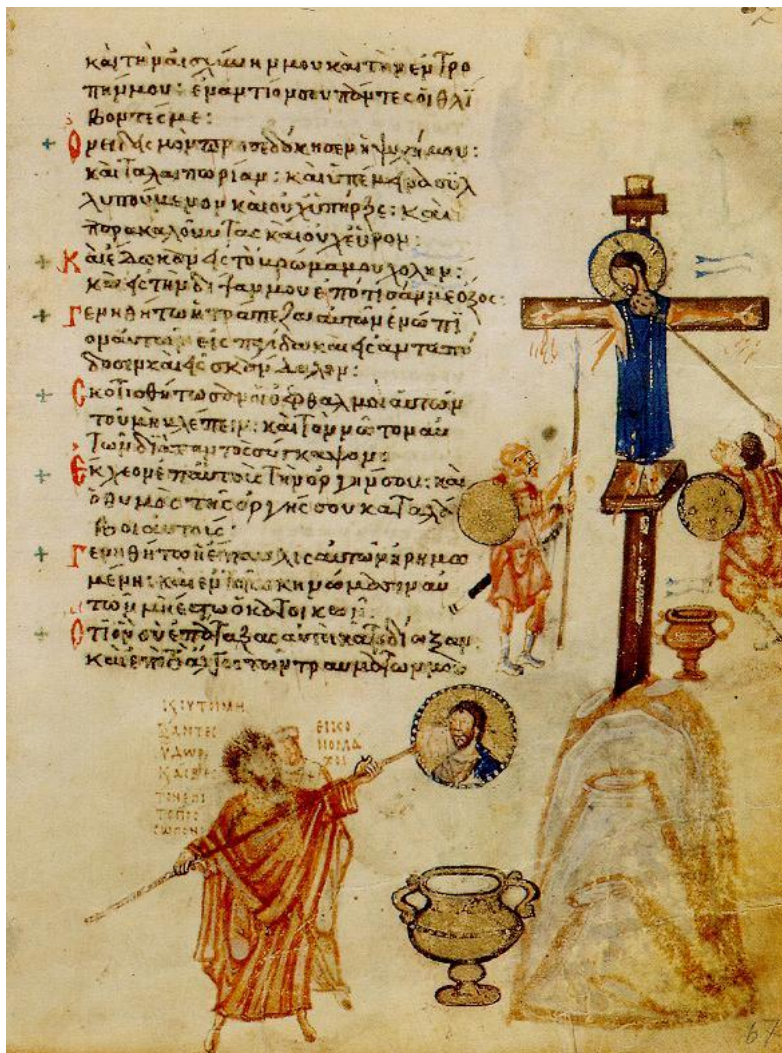 καὶ τὴν αἰσχύνην μου καὶ τὴν ἐντρο
πήν μου: ἐναντίον σου πάντες οἱ θλί
βοντές με:
Ὀνειδισμὸν προσεδόκησεν ἡ ψυχή μου:
καὶ ταλαιπωρίαν: καὶ ὑπέμεινα συλ
λυπούμενον καὶ οὐχ ὑπῆρξε: καὶ
παρακαλοῦντας καὶ οὐχ εὗρον:
Καὶ ἔδωκαν εἰς τὸ βρῶμά μου χολήν:
καὶ εἰς τὴν δίψαν μου ἐπότισάν με ὄξος:
Γενηθήτω ἡ τράπεζα αὐτῶν ἐνώπι
ον αὐτῶν εἰς παγίδα καὶ εἰς ἀνταπό
δοσιν καὶ εἰς σκάνδαλον:
Σκοτισθήτωσαν οἱ ὀφθαλμοὶ αὐτῶν
τοῦ μὴ βλέπειν: καὶ τὸν νῶτον αὐ
τῶν διὰ παντὸς σύγκαμψον:
Ἔκχεον ἐπ αὐτοὺς τὴν ὀργήν σου: καὶ
ὁ θυμὸς τῆς ὀργῆς σου καταλά
βοι αὐτούς:
Γενηθήτω ἡ ἔπαυλις αὐτῶν ἠρημω
μένη: καὶ ἐν τοῖς σκηνώμασιν αὐ
τῶν μὴ ἔστω ὁ κατοικῶν:
Ὅτι ὃν σὺ ἐπάταξας αὐτοὶ κατεδίωξαν:
καὶ ἐπὶ τὸ ἄλγος τῶν τραυμάτων μου
ΕΙΚΟ
ΝΟΜΑ
ΧΟΙ
ΥΔΩΡ
67